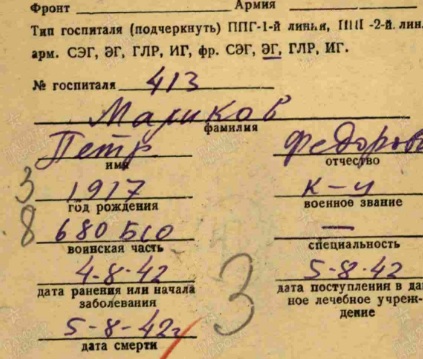 Фронт Армия
Тип госпиталя (подчеркнуть) ППГ-1-й линии, ППГ-2-й лин
арм. СЭГ, ЭГ, ГЛР, ИГ, фр. СЭГ, ЭГ, ГЛР, ИГ.
№ госпиталя 413
Маликов
фамилия
Петр Федоров
имя отчество
3 1917 к-ц
год рождения военное звание
8 680 БАО —
воинская часть специальность
4-8-42 5-8-42
дата ранения или начала дата поступления в дан
заболевания ное лечебное учреж-
3 дение
5-8-42г
дата смерти